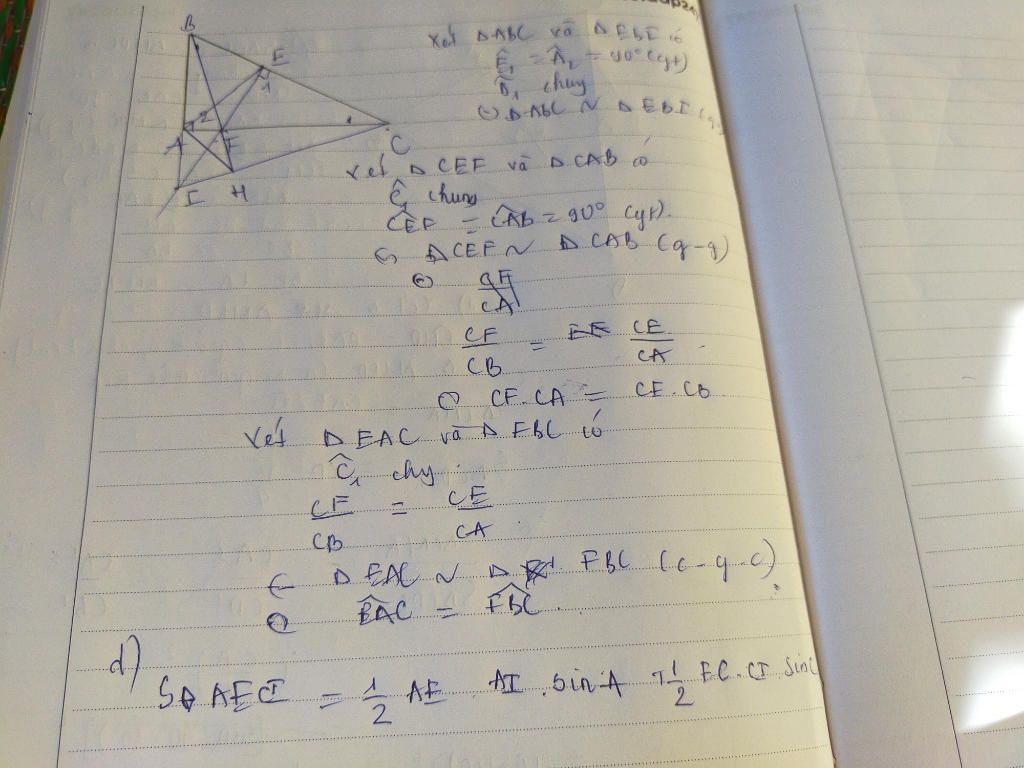 B
E
1
A
2
F
C
I
H
Xét Δ ABC và Δ EBI có
Ê₁ = Â₂ = 90° (gt)
B̂₁ chung
Δ ABC ~ Δ EBI (g
Xét Δ CEF và Δ CAB có
Ĉ₁ chung
CEF = CAB = 90° (gt).
Δ CEF ~ Δ CAB (g-g)
CA
CF/CB = CE/CA
CF.CA = CE.CB
Xét Δ EAC và Δ FBC có
Ĉ₁ chg
CF/CB = CE/CA
Δ EAC ~ Δ FBC (c-g-c)
EAC = FBC.
d)
SΔ AECI = 1/2 AE . AI . sin A + 1/2 EC . CI sin C